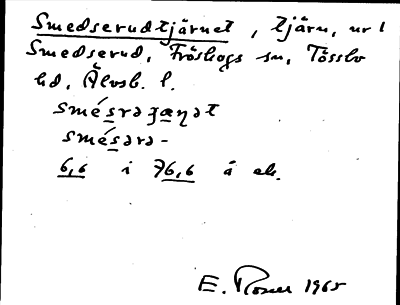 Smedserudtjärnet, tjärn, nr 1
Smedserud, Fröskogs sn, Tössbo
hd, Älvsb. l.
smésrəʒæṇət
smésərə-
6,6 i 76,6 å ek.
E. Rosen 1965